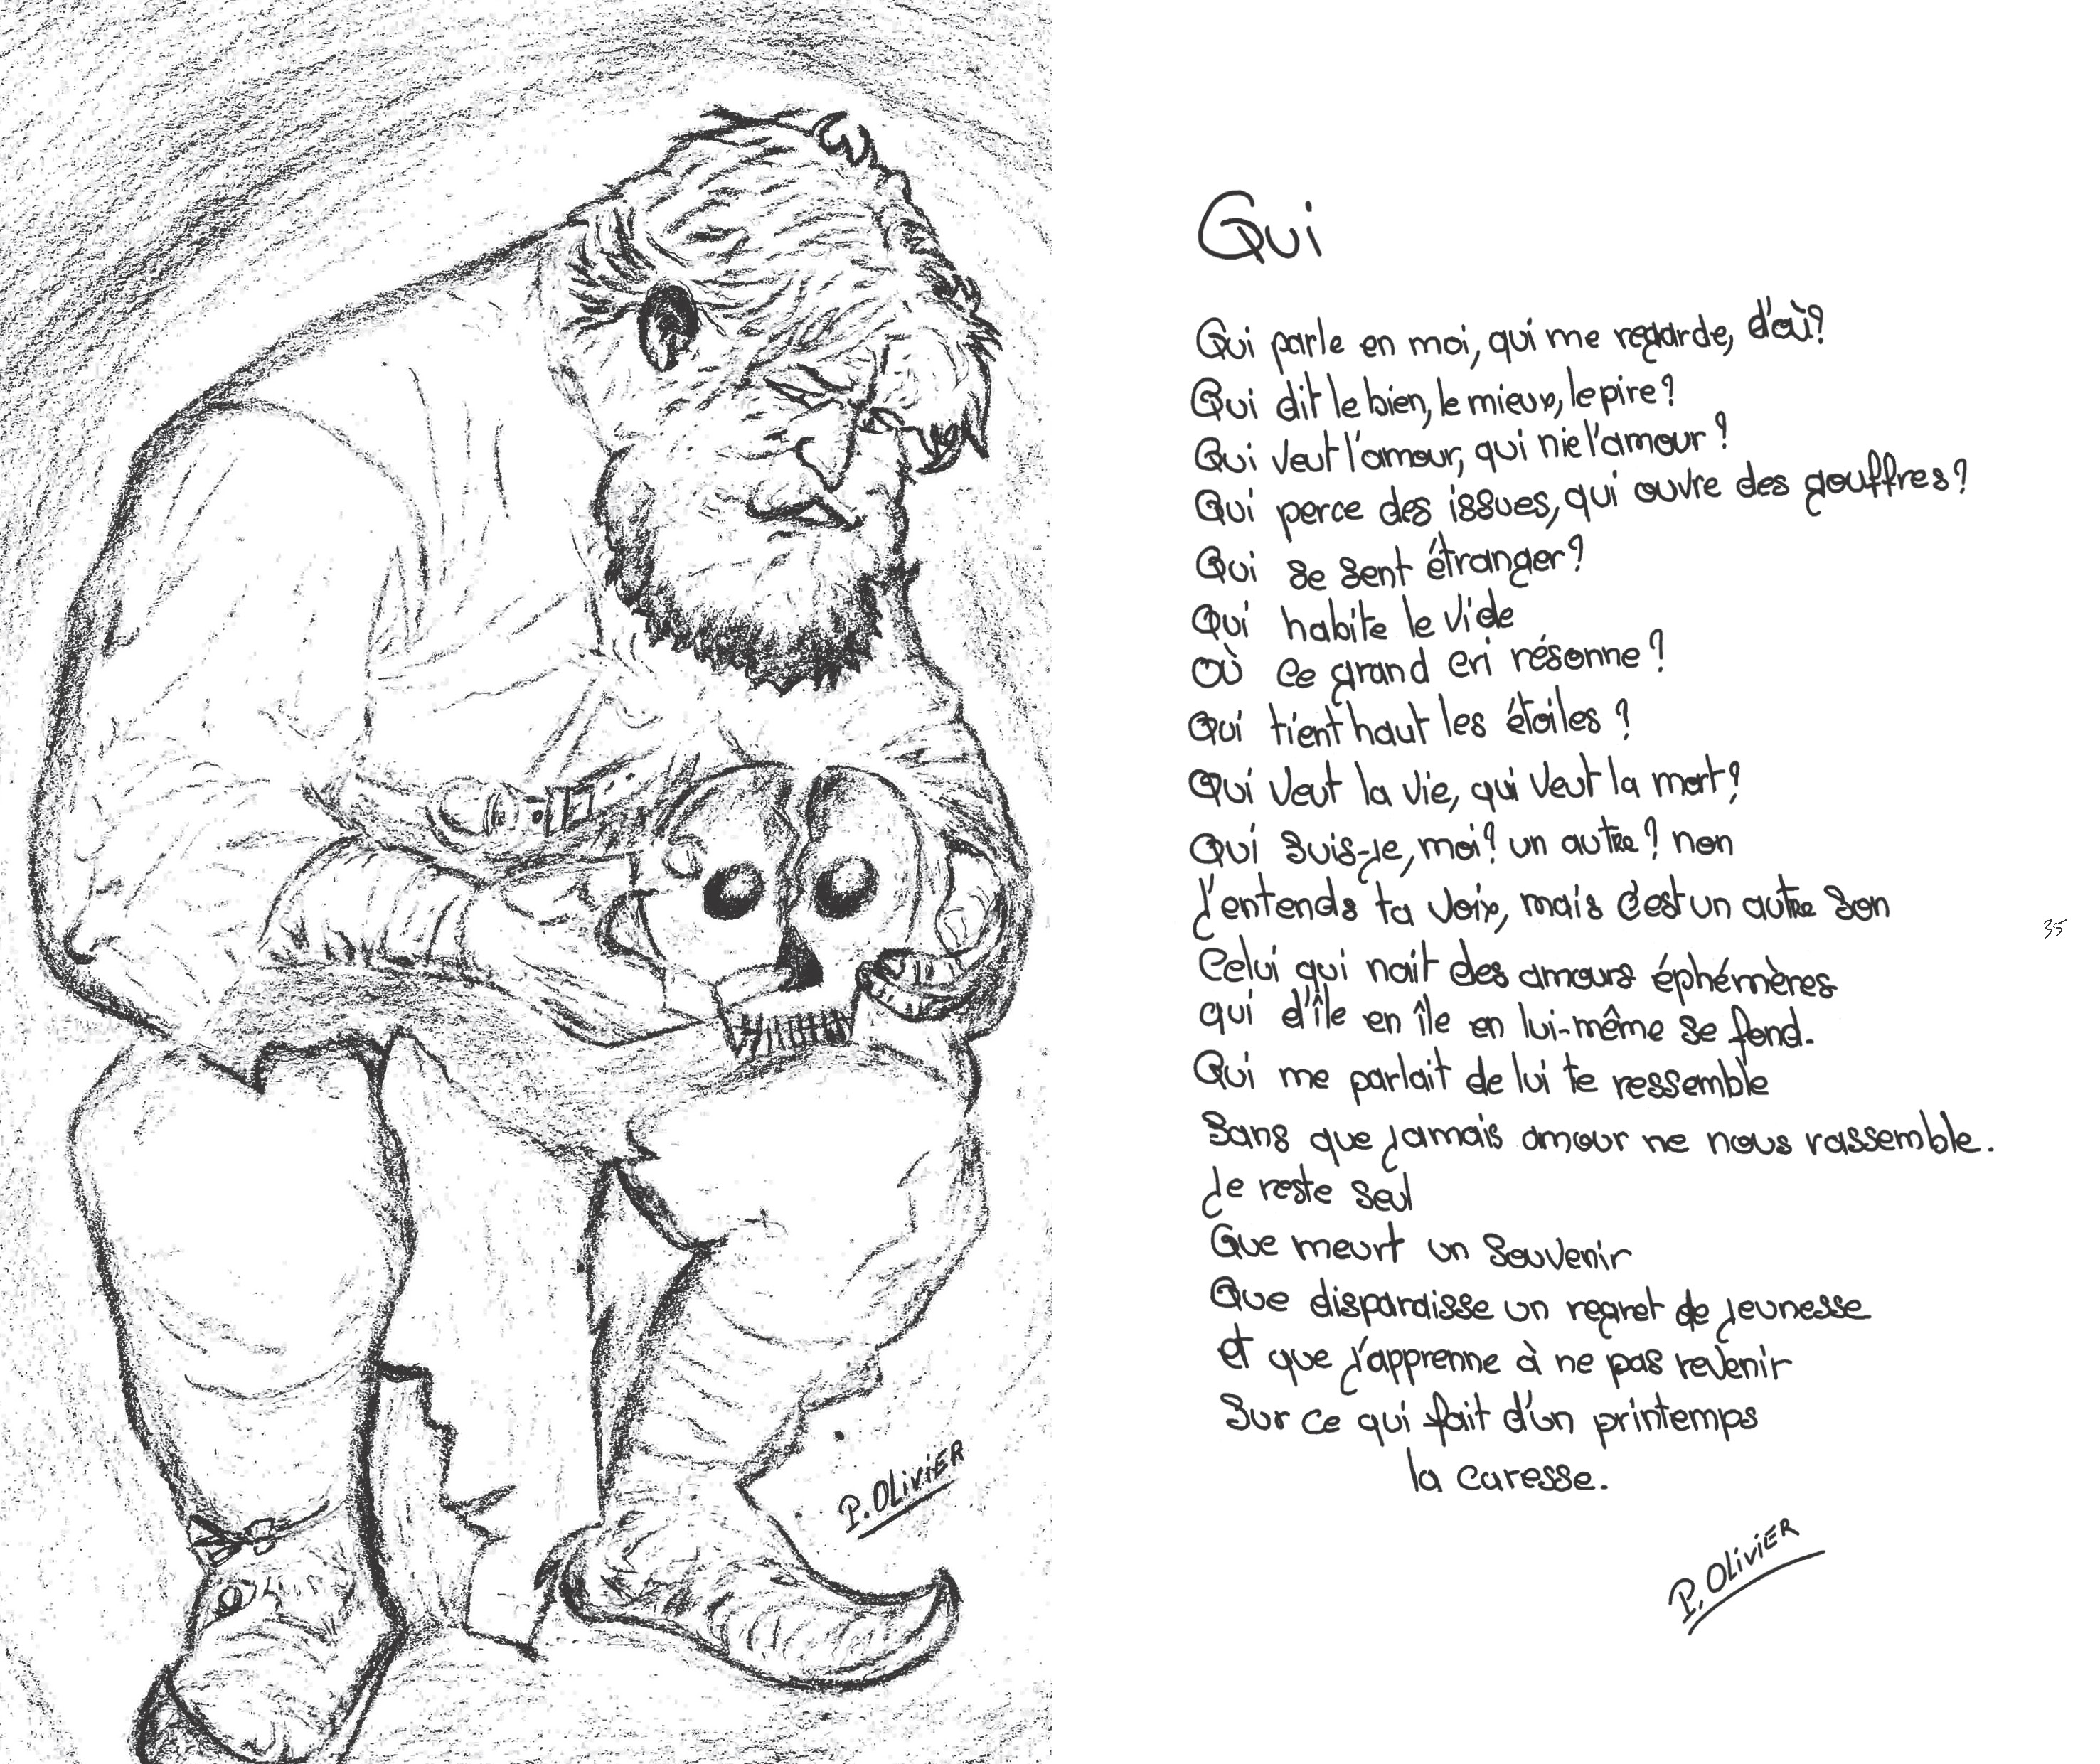 P. OLIVIER
Qui
Qui parle en moi, qui me regarde, d'où?
Qui dit le bien, le mieux, le pire?
Qui veut l'amour, qui nie l'amour?
Qui perce des issues, qui ouvre des gouffres?
Qui se sent étranger?
Qui habite le vide
Où ce grand cri résonne?
Qui tient haut les étoiles?
Qui veut la vie, qui veut la mort?
Qui suis-je, moi? un autre? non
J'entends ta voix, mais c'est un autre son
Celui qui nait des amours éphémères
qui d'île en île en lui-même se fond.
Qui me parlait de lui te ressemble
Sans que jamais amour ne nous rassemble.
Je reste seul
Que meurt un souvenir
Que disparaisse un regret de jeunesse
et que j'apprenne à ne pas revenir
Sur ce qui fait d'un printemps
la caresse.
P. OLIVIER
35